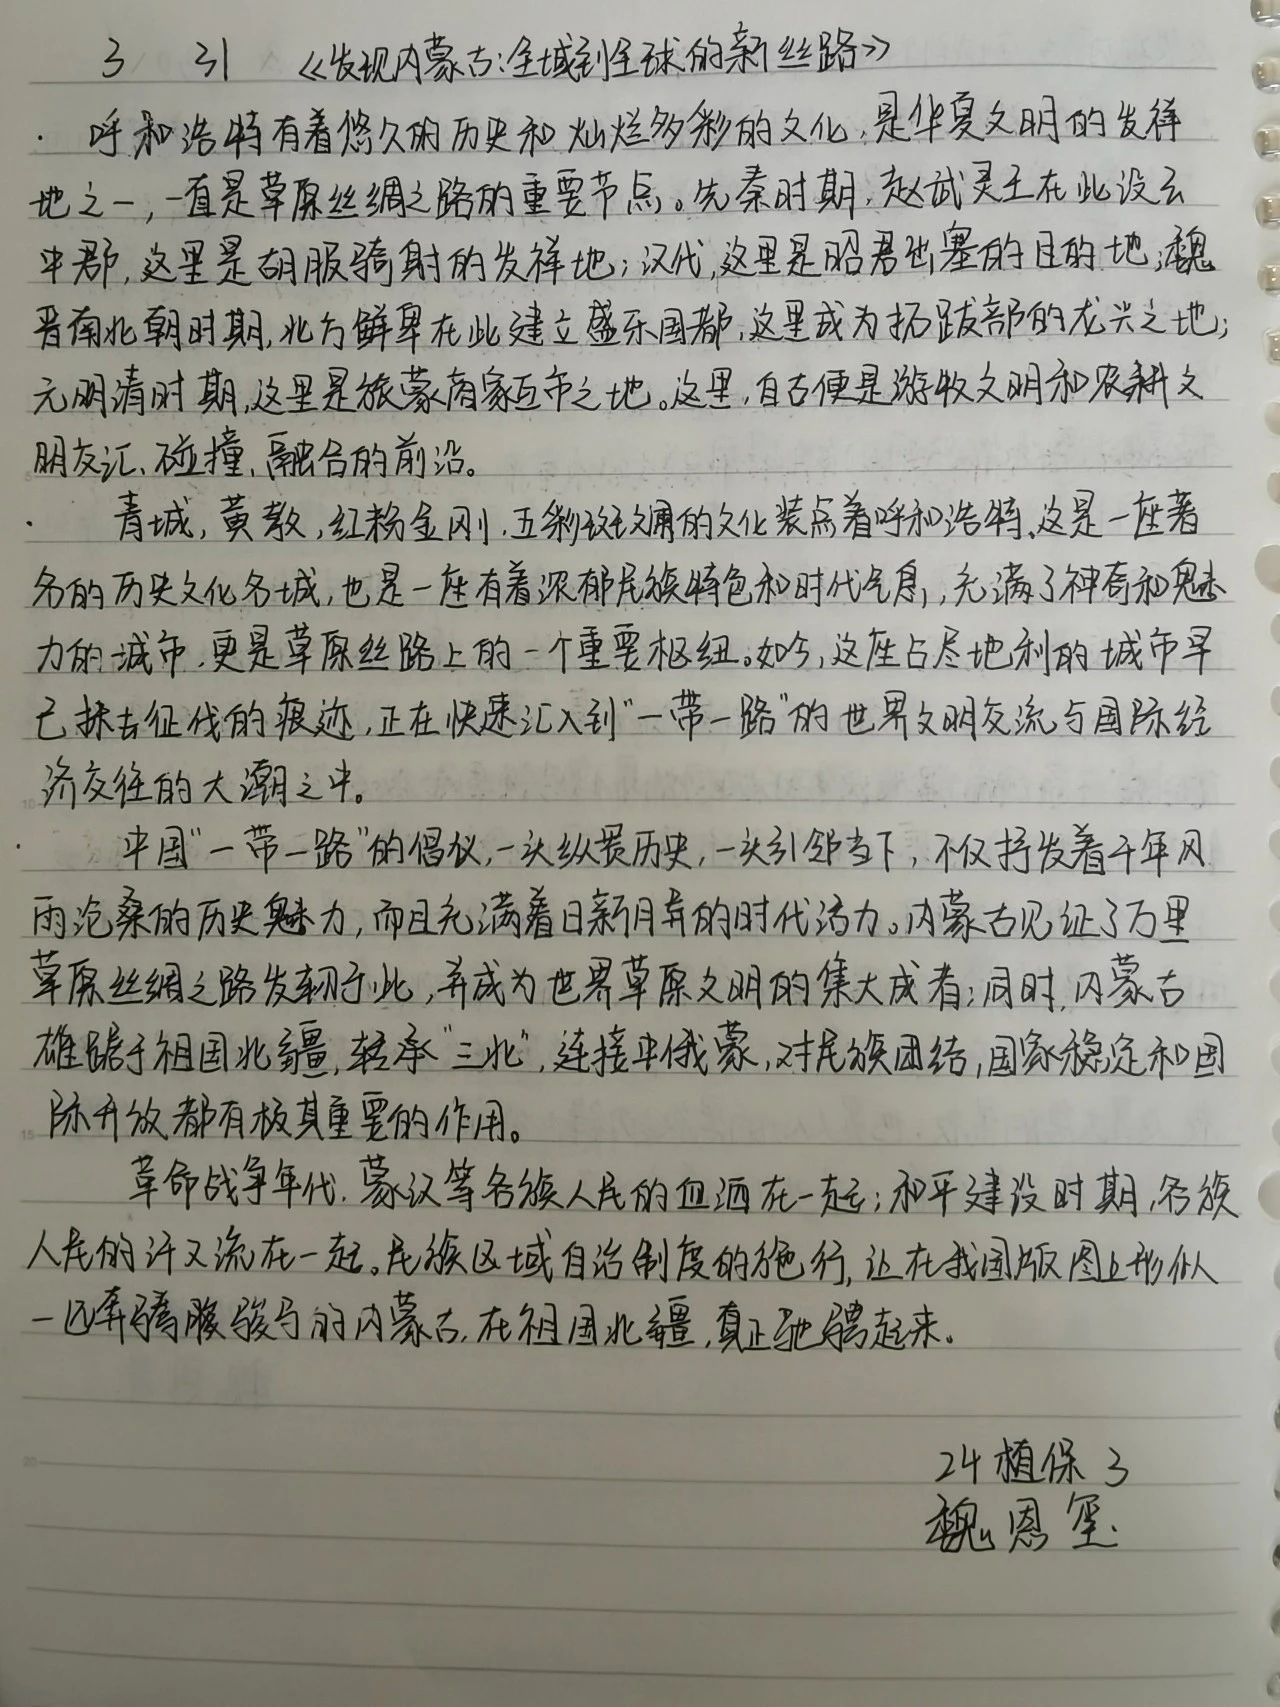 3 31 《发现内蒙古:全域到全球的新丝路》
· 呼和浩特有着悠久的历史和灿烂多彩的文化,是华夏文明的发祥
地之一,一直是草原丝绸之路的重要节点。先秦时期,赵武灵王在此设云
中郡,这里是胡服骑射的发祥地;汉代,这里是昭君出塞的目的地;魏
晋南北朝时期,北方鲜卑在此建立盛乐国都,这里成为拓跋部的龙兴之地;
元明清时期,这里是旅蒙商家互市之地。这里,自古便是游牧文明和农耕文
明交汇、碰撞、融合的前沿。
· 青城,黄教,红粉金刚,五彩斑斓的文化装点着呼和浩特、这是一座著
名的历史文化名城,也是一座有着浓郁民族特色和时代气息,充满了神奇和魅
力的城市,更是草原丝路上的一个重要枢纽。如今,这座占尽地利的城市早
已抹去征伐的痕迹,正在快速汇入到“一带一路”的世界文明交流与国际经
济交往的大潮之中。
· 中国“一带一路”的倡议,一头纵贯历史,一头引领当下,不仅抒发着千年风
雨沧桑的历史魅力,而且充满着日新月异的时代活力。内蒙古见证了万里
草原丝绸之路发轫于此,并成为世界草原文明的集大成者;同时,内蒙古
雄踞于祖国北疆,转承“三北”,连接中俄蒙,对民族团结,国家稳定和国
际开放都有极其重要的作用。
革命战争年代,蒙汉等各族人民的血洒在一起;和平建设时期,各族
人民的汗又流在一起。民族区域自治制度的施行,让在我国版图上形似
一匹奔腾骏马的内蒙古,在祖国北疆,真正驰骋起来。
24植保3
魏恩玺